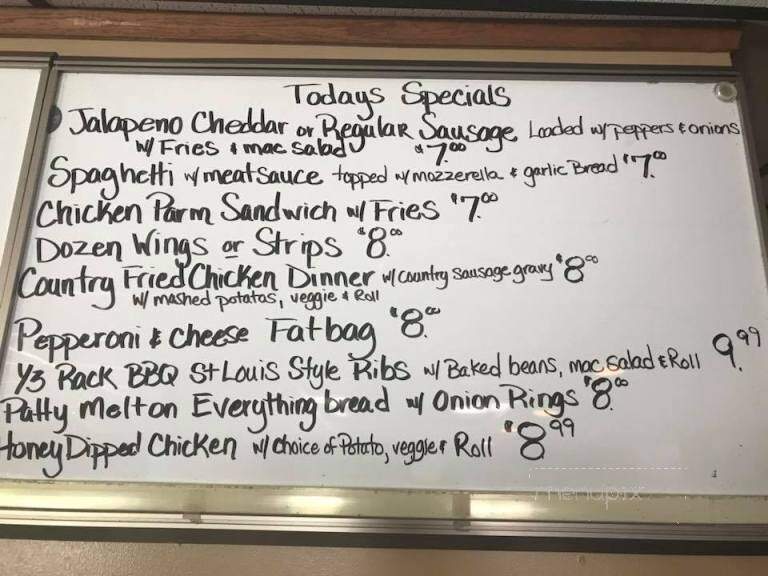 Todays Specials
Jalapeno Cheddar or Regular Sausage Loaded w/ peppers & onions
w/ Fries & mac salad $7.00
Spaghetti w/ meatsauce topped w/ mozzerella & garlic Bread $7.00
Chicken Parm Sandwich w/ Fries $7.00
Dozen Wings or Strips $8.00
Country Fried Chicken Dinner w/ Country Sausage gravy $8.00
w/ mashed potatas, veggie & Roll
Pepperoni & Cheese Fatbag $8.00
1/3 Rack BBQ St Louis Style Ribs w/ Baked beans, mac salad & Roll 9.99
Patty Melt on Everything bread w/ Onion Rings $8.00
Honey Dipped Chicken w/ choice of Potato, veggie & Roll $8.99
menupix